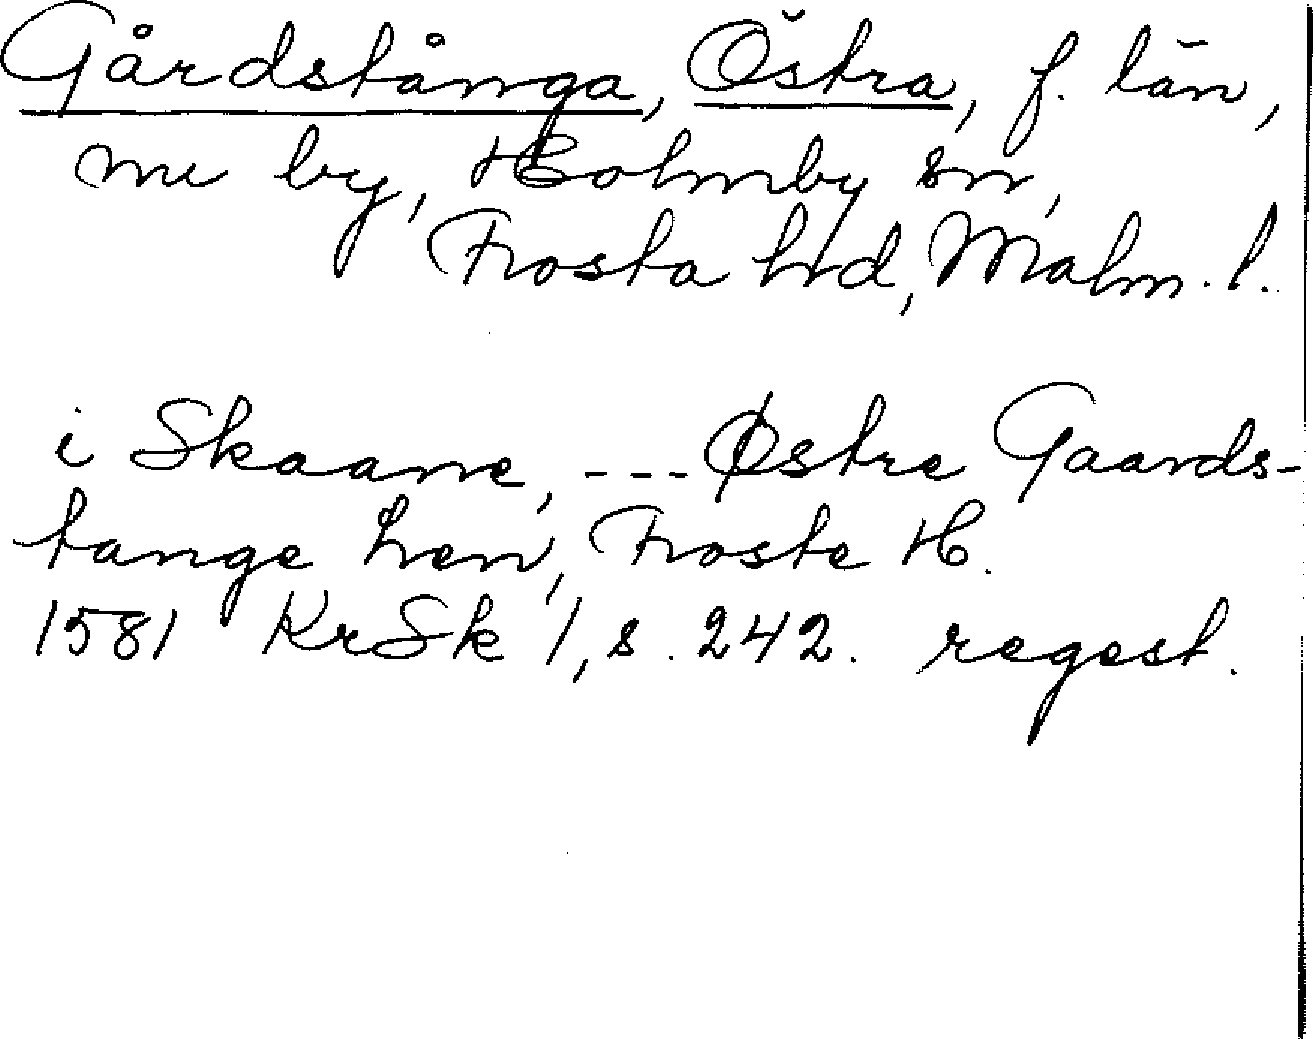 Gårdstånga, Östra, f. län,
nu by, Holmby sn,
Frosta hd, Malm. l.
i Skaane, --- Østre Gaards-
tange Len, Froste H.
1581 KrSk 1, s. 242. regest.